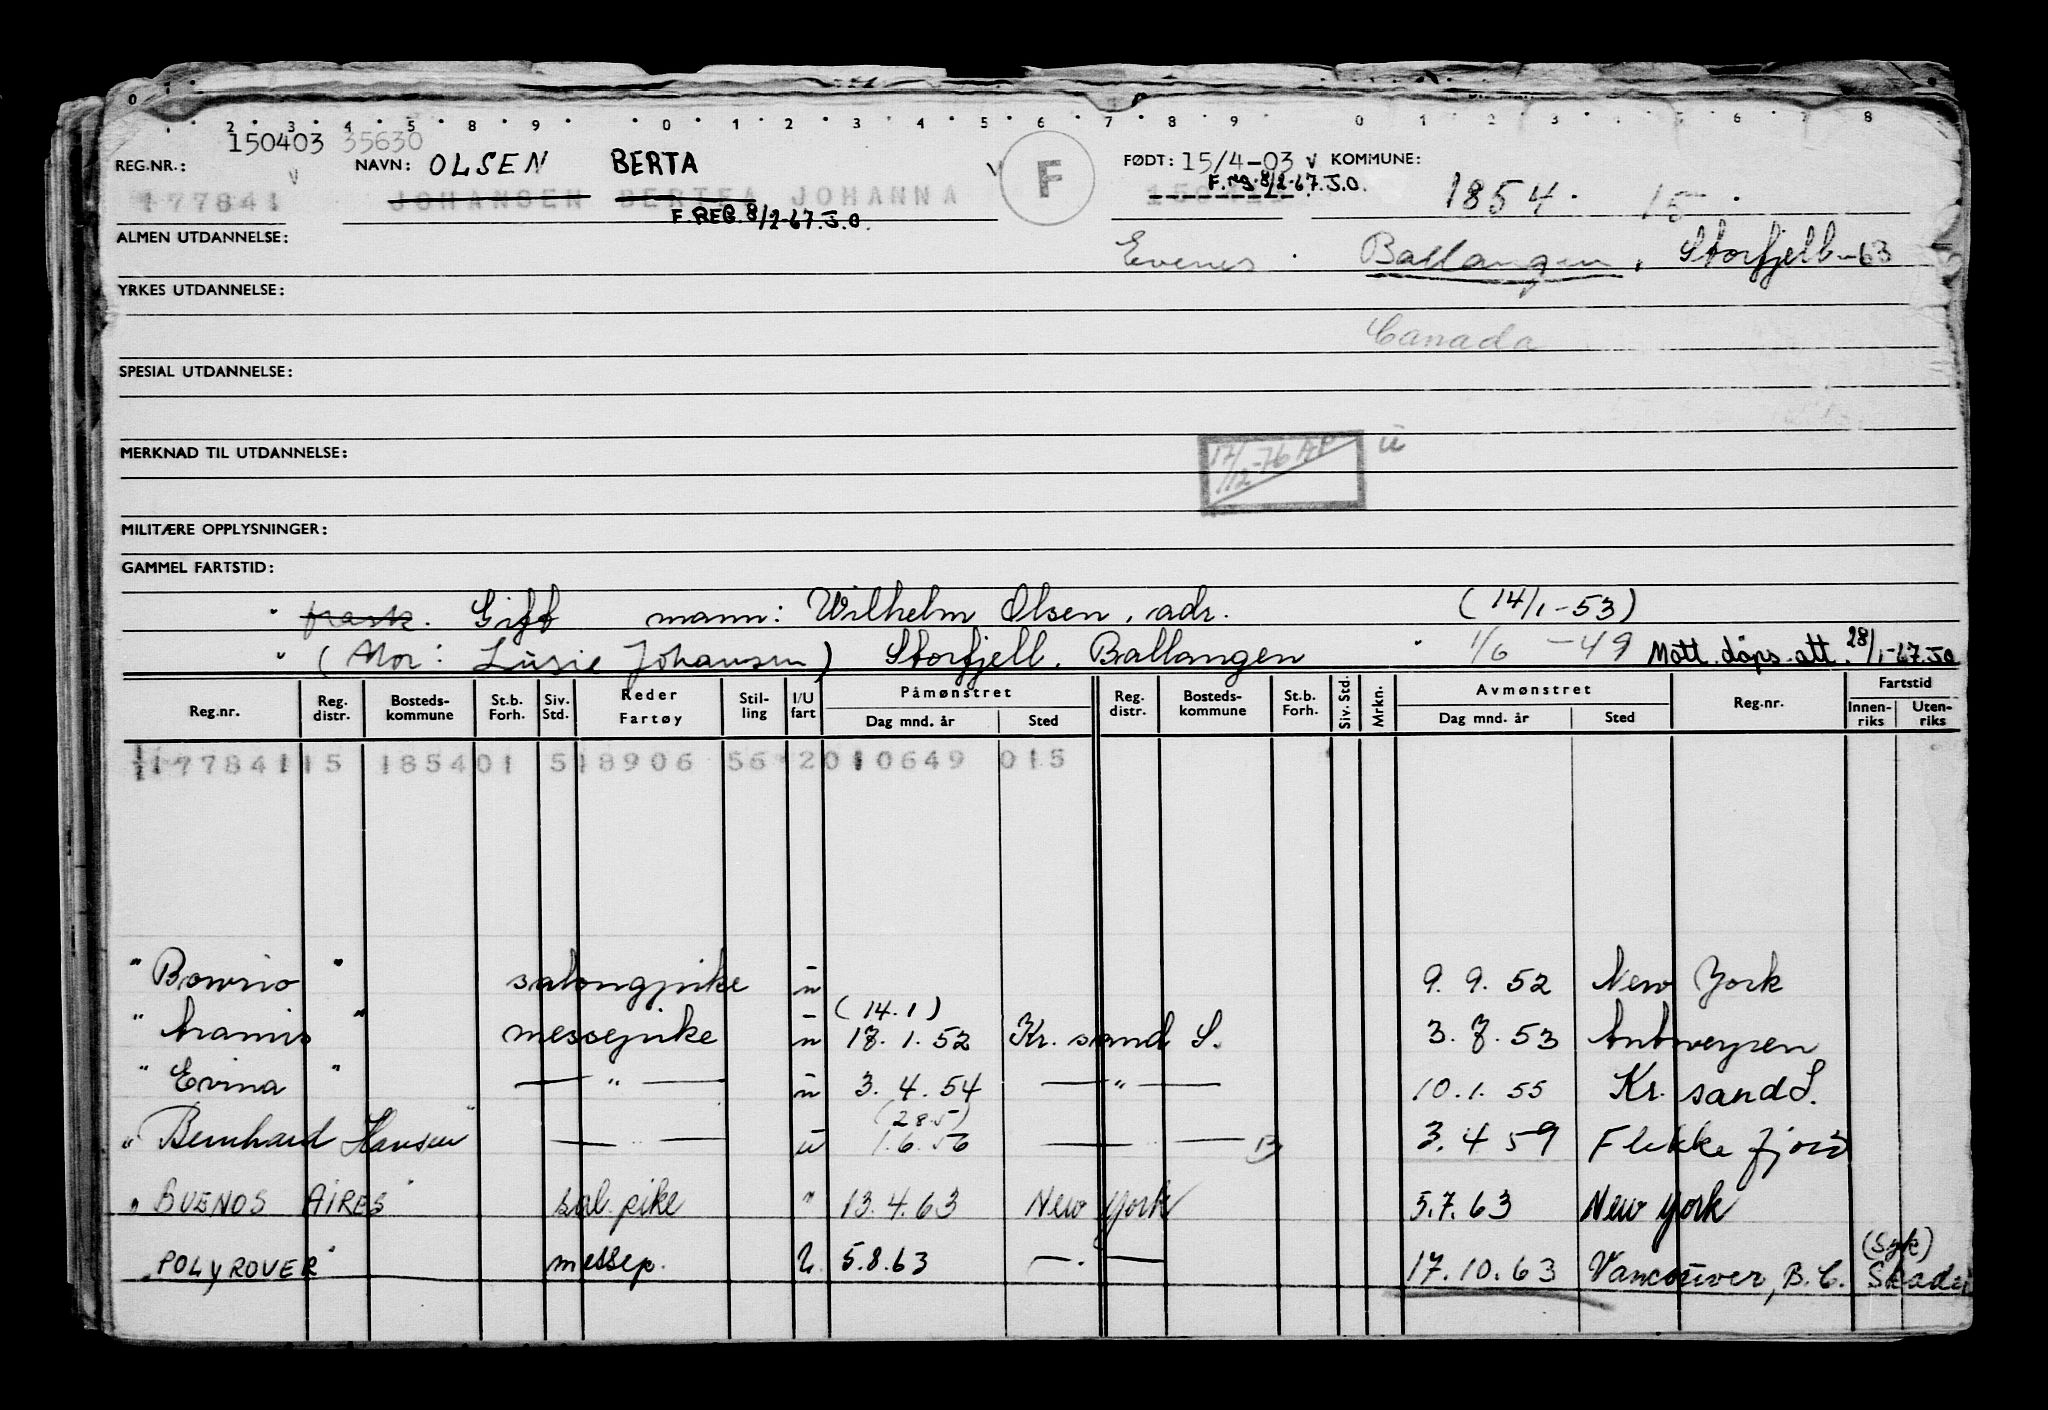 0 1 2 3 4 5 8 9 0 1 2 3 4 5 6 7 8 9 0 1 2 3 4 5 6 7 8
150403 35630
REG.NR.: NAVN: OLSEN BERTA F FØDT: 15/4-03 v KOMMUNE:
177841 JOHANSEN BERTEA JOHANNA F.reg. 8/2-67. J.O. 1854. 15
F. REG. 8/2-67. J.O.
ALMEN UTDANNELSE: Evenes. Ballangen, Storfjell -63
YRKES UTDANNELSE:
Canada
SPESIAL UTDANNELSE:
MERKNAD TIL UTDANNELSE: 17/12-76 ü
MILITÆRE OPPLYSNINGER:
GAMMEL FARTSTID:
" frask. Gift mann: Wilhelm Olsen, adr. (14/1-53)
" (Mor: Lusie Johansen) Storfjell. Ballangen " 1/6 -49 Mott. dåps.att. 28/1-67. JO
Reg.nr. Reg. distr. Bosteds-kommune St.b. Forh. Siv. Std. Reder Fartøy Stil-ling I/U fart Påmønstret Dag mnd. år Sted Reg. distr. Bosteds-kommune St.b. Forh. Siv. Std. Mrkn. Avmønstret Dag mnd. år Sted Reg.nr. Fartstid Innen-riks Uten-riks
177841 15 1854 01 5 18906 56 2 010649 015
" Bowrio " salongpike ü 9. 9. 52 New York
(14.1)
" Aramis " messepike ü 17. 1. 52 Kr. sand S. 3. 7. 53 Antwerpen
" Evina " — " — ü 3. 4. 54 — " — 10. 1. 55 Kr. sand S.
(28.5)
" Bernhard Hansen " — — ü 1. 6. 56 — — 3. 4 59 Flekkefjord
" BUENOS AIRES " sal. pike " 13. 4. 63 New York 5. 7. 63 New York
" POLYROVER " messep. U 5. 8. 63 — . — 17. 10. 63 Vancouver, B.C. (Syk) Skadet